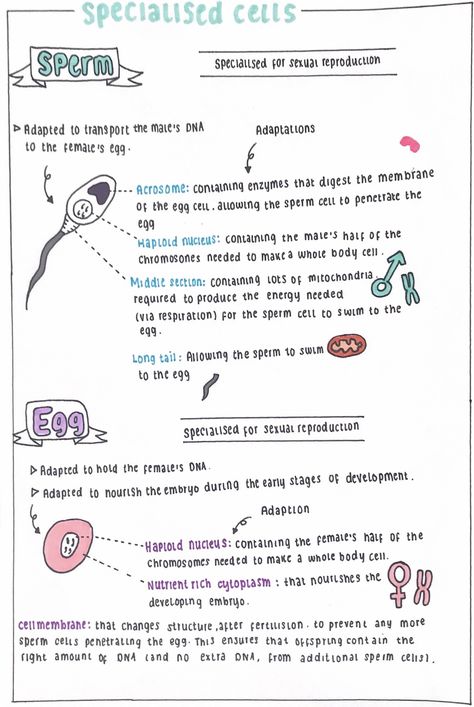 Specialised cells
Sperm
Specialised for sexual reproduction
▷ Adapted to transport the male's DNA
to the female's egg.
Adaptations
Acrosome: containing enzymes that digest the membrane
of the egg cell. allowing the sperm cell to penetrate the
egg
Haploid nucleus: containing the male's half of the
chromosones needed to make a whole body cell.
Middle section: containing lots of mitochondria
required to produce the energy needed
(via respiration) for the sperm cell to swim to the
egg.
Long tail: Allowing the sperm to swim
to the egg
Egg
Specialised for sexual reproduction
▷ Adapted to hold the female's DNA.
▷ Adapted to nourish the embryo during the early stages of development.
Adaption
Haploid nucleus: containing the female's half of the
chromosomes needed to make a whole body cell.
Nutrient rich cytoplasm: that nourishes the
developing embryo.
cell membrane: that changes structure, after fertilision. to prevent any more
sperm cells penetrating the egg. This ensures that offspring contain the
right amount of DNA (and no extra DNA, from additional sperm cells).